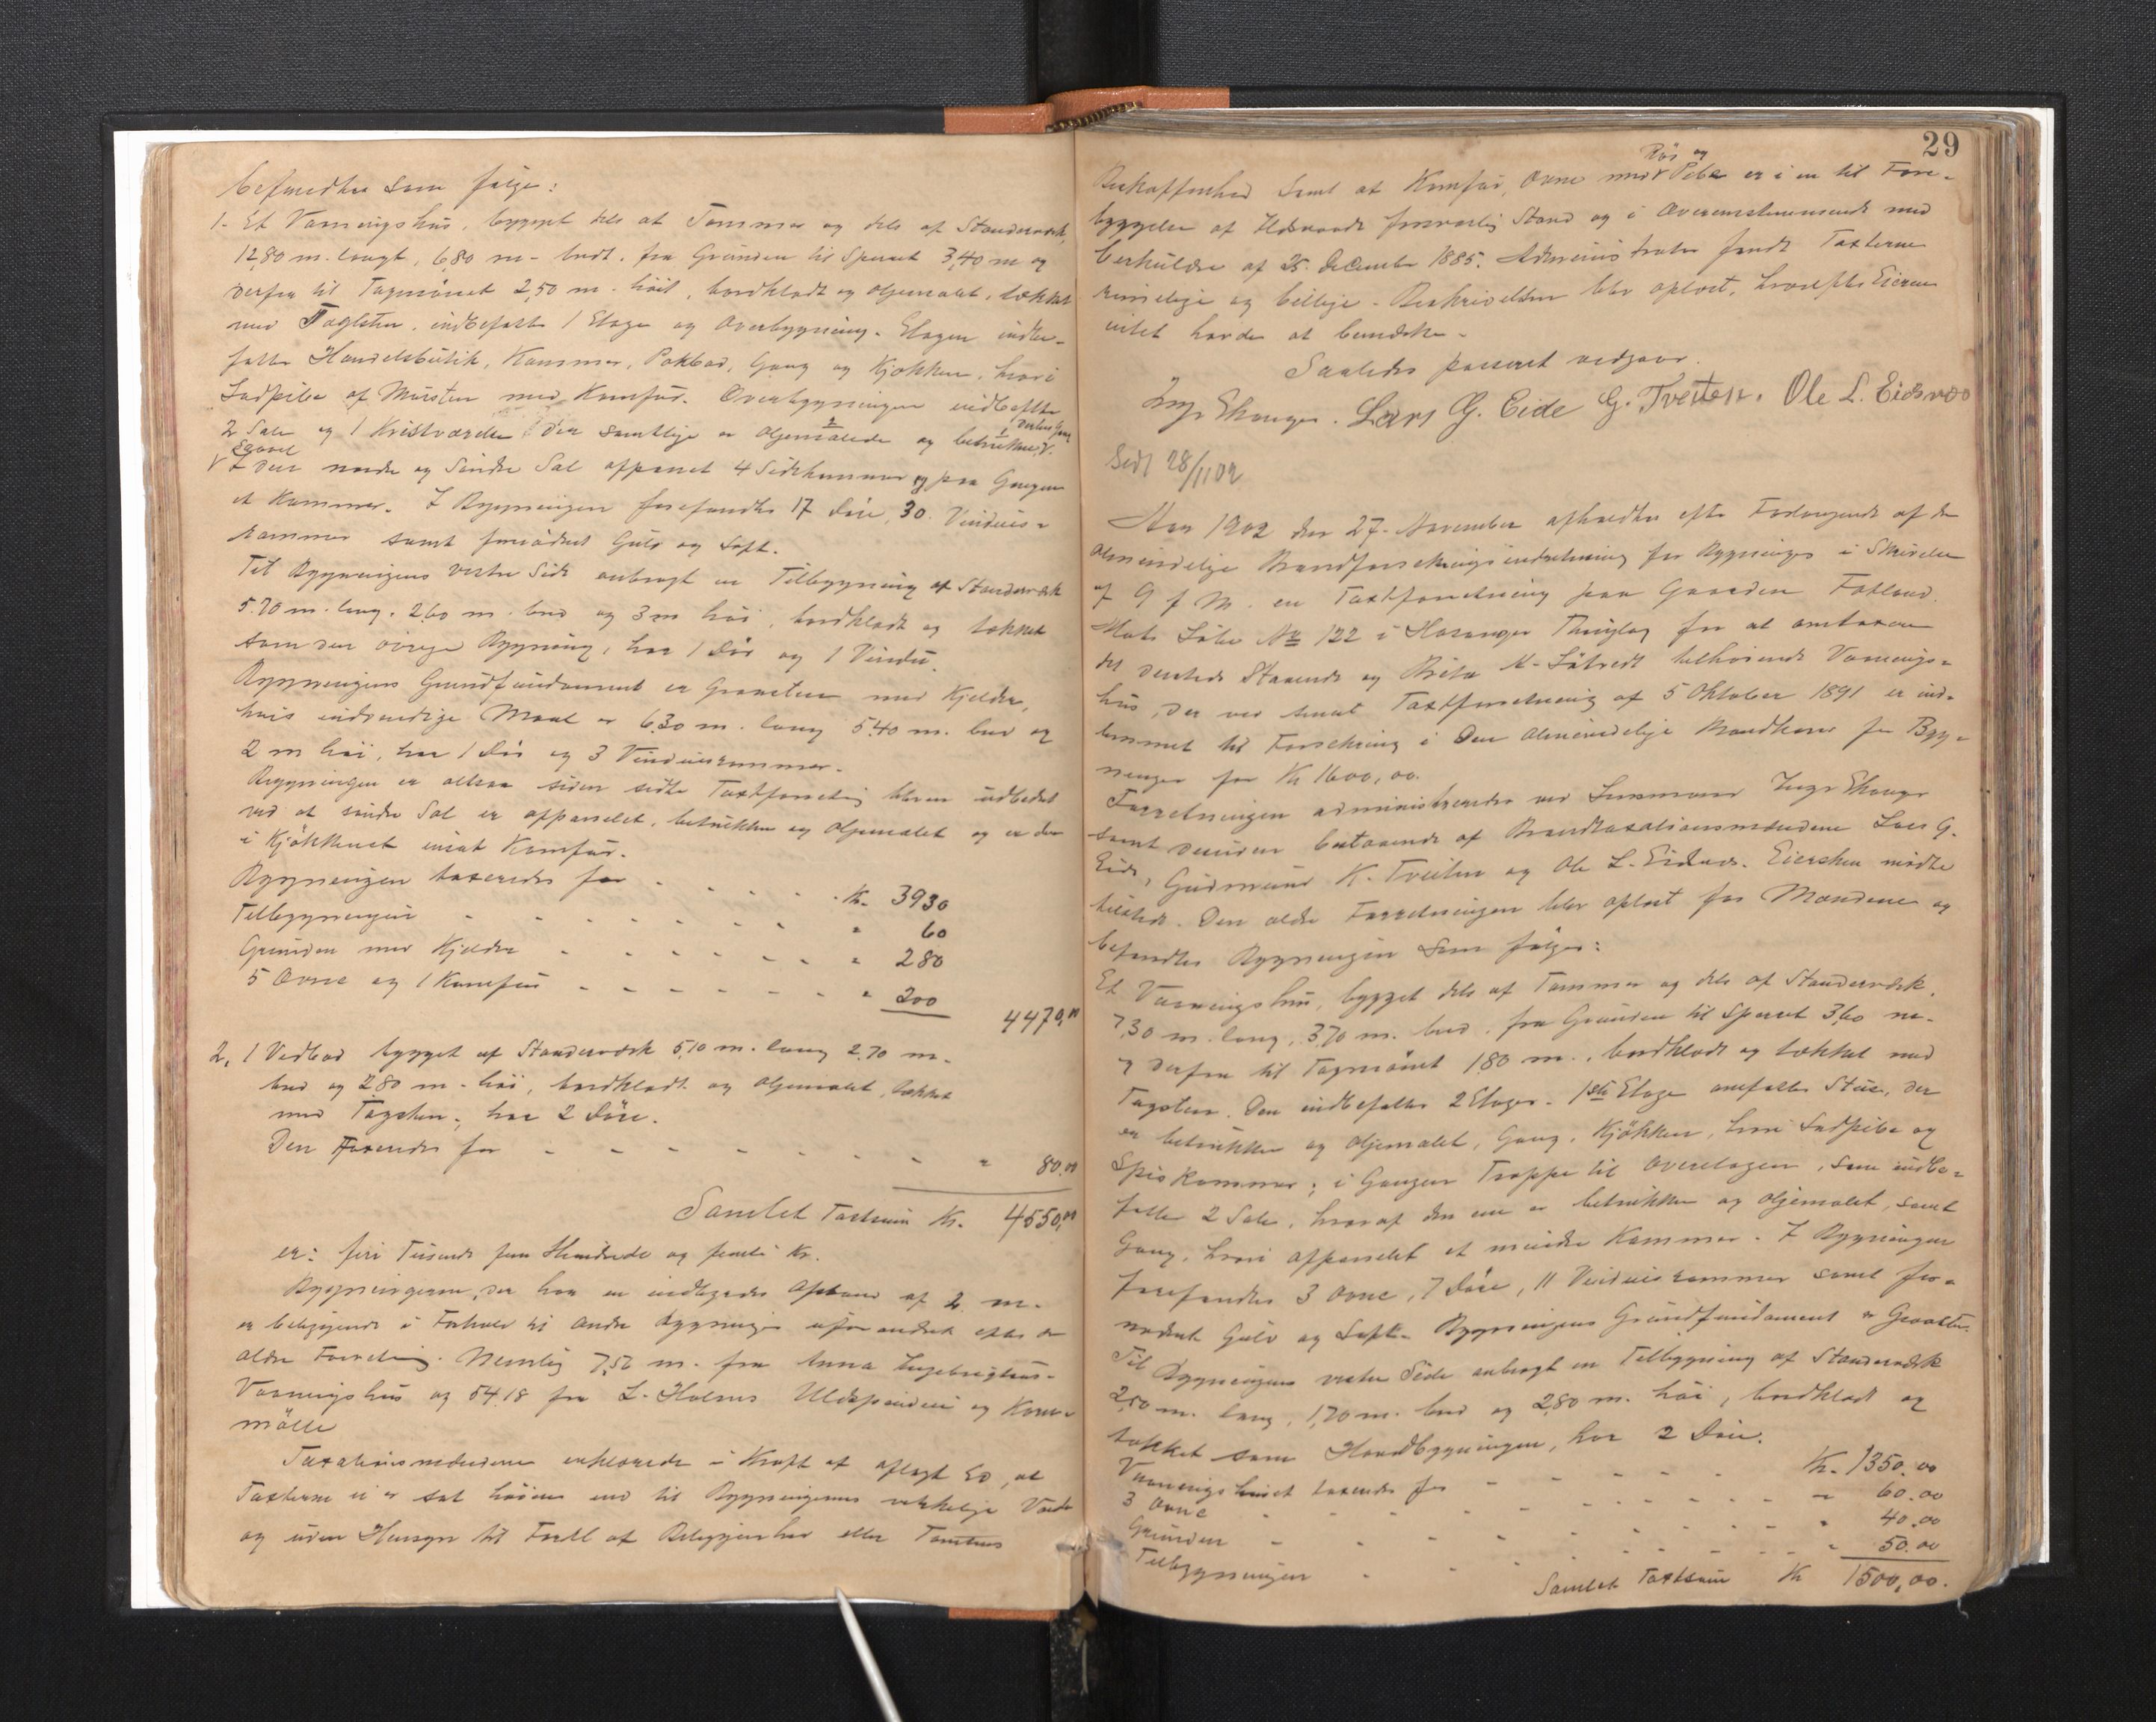 befandtes som følge:
1. Et Vaaningshus, bygget dels af Tømmer og dels af Standerværk,
12,80 m. langt, 6,80 m. bredt, fra Grunden til Sperret 3,40 m og
derfra til Tagmønet 2,50 m. høit, bordklædt og oljemalet, tækket
med Taglsten, indbefatter 1 Etage og Overbygning. Etagen indbe-
fatter Handelsbutik, Kammer, Pakbod, Gang og Kjøkken, hvori
Ladpibe af Mursten med Komfur. Overbygningen indbefatter
2 Sale og 1 Kvistværelse, der samtlige er oljemalede og betrukne,
I den nordre og Søndre Sal afpanel 4 Sidekammer og paa Gangen
et Kammer. I Bygningen forefandtes 17 Døre, 30 Vindues-
rammer samt fornødent Gulv og Loft.
Til Bygningens vestre Side anbragt en Tilbygning af Standerværk
5.70 m. lang, 2,60 m. bred og 3 m høi, bordklædt og tækket
som den øvrige Bygning, har 1 Dør og 1 Vindu.
Bygningens Grundfundament er Graasten med Kjelder,
hvis indvendige Maal er 6,30 m. lang 5,40 m. bred og
2 m høi, har 1 Dør og 3 Vinduesrammer.
Bygningen er altsaa siden sidste Taxtforretning bleven udbedret
ved at søndre Sal er afpanelet, betrukken og oljemalet og er der
i Kjøkkenet insat Komfur.
Bygningen taxeredes for - - - - Kr. 3930
Tilbygningen - - - - - - " 60
Grunden med Kjelder - - - - - - " 280
5 Ovne og 1 Komfur - - - - - - " 200
4470,00
2. 1 Vedbod bygget af Standerværk 5,10 m. lang 2,70 m.
bred og 2,80 m. høi, bordklædt og oljemalet, tækket
med Tagsten, har 2 Døre.
Den Taxeredes for - - - - - - - " 80.00
Samlet Taxtsum Kr. 4550,00
er: fire Tusende fem Hundrede og femti Kr.
Bygningerne, der har en indbyrdes Afstand af 2 m.
er beliggende i Forhold til andre Bygninger uforandret efter den
ældre Forretning. Nemlig 7,52 m. fra Anna Ingebrigtsens
Vaaningshus og 54,18 fra L. Holmes Uldspinderi og Korn-
mølle
Taxationsmændene erklærede i Kraft af aflagt Ed, at
Taxterne ei er sat høiere end til Bygningernes virkelige Værdi
og uden Hensyn til Fordel af Beliggenhed eller Tomtens
29
Rør og
Beskaffenhed samt at Komfur, Ovne med Pibe er i en til Fore-
byggelse af Ildsvaade forsvarlig Stand og i Overensstemmende med
Cirkulære af 25. December 1885. Administrator fandt Taxterne
rimelige og billige. Beskrivelsen blev oplæst, hvorefter Eieren
intet havde at bemærke.
Saaledes passeret vedgaar.
Lars G. Eide G. Tveiten. Ole L. Eidsnes
28/11 02
Aar 1902 den 27. November afholdtes efter Forlangende af den
almindelige Brandforsikringsindretning for Bygninger i Skrivelse
af 9 f M. en Taxtforretning paa Gaarden Fotland
Matr Løbe No 122 i Hosanger Thinglag for at omtaxere
det dersteds Staaende og Brita N. Søtvedt tilhørende Vaanings-
hus, der ved senest Taxtforretning af 5 Oktober 1891 er ind-
lemmet til Forsikring i Den almindelige Brandkasse for Byg-
ninger for Kr 1600,00.
Forretningen administreredes ved Lensmand Inge Skauge
samt desuden bestaaende af Brandtaxationsmændene Lars G.
Eide, Gudmund K. Tveiten og Ole L. Eidsnes. Eiersken mødte
tilstede. Den ældre Forretningen blev oplæst for Mændene og
befandtes Bygningen som følger:
Et Vaaningshus, bygget dels af Tømmer og dels af Standerværk.
7,30 m. lang, 3,70 m. bred, fra Grunden til Sperret 3,60 m.
og derfra til Tagmønet 1,80 m., bordklædt og tækket med
Tagsten. Den indbefatter 2 Etager. 1ste Etage omfatter Stue, der
er betrukken og oljemalet, Gang, Kjøkken, hvori Ladpibe og
Spiskammer; i Gangen Trappe til Overetagen, som indbe-
fatter 2 Sale, hvoraf den ene er betrukken og oljemalet, samt
Gang, hvori afpanelet et mindre Kammer. I Bygningen
forefandtes 3 Ovne, 7 Døre, 11 Vinduesrammer samt for-
nødent Gulv og Loft. Bygningens Grundfundament er Graasten.
Til Bygningens vestre Side anbragt en Tilbygning af Standerværk
2,50 m. lang, 1,70 m. bred og 2,80 m. høi, bordklædt og
tækket som Hovedbygningen, har 2 Døre.
Vaaningshuset taxeredes for - - - - Kr. 1350.00
3 Ovne - - - - - - " 60.00
Grunden - - - - - - " 40.00
Tilbygningen - - - - - - " 50.00
Samlet Taxtsum Kr 1500,00.